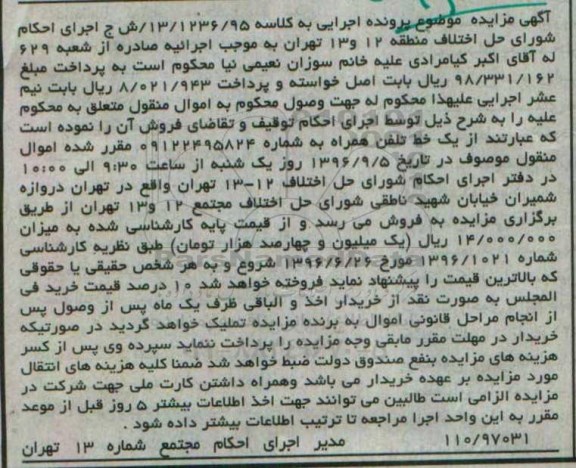 آگهی مزایده موضوع پرونده اجرایی به کلاسه ۱۳/۱۲۳۶/۹۵/ش ج اجرای احکام
شورای حل اختلاف منطقه ۱۲ و۱۳ تهران به موجب اجرائیه صادره از شعبه ۶۲۹
له آقای اکبر کیامرادی علیه خانم سوزان نعیمی نیا محکوم است به پرداخت مبلغ
۹۸/۳۳۱/۱۶۲ ریال بابت اصل خواسته و پرداخت ۸/۰۲۱/۹۴۳ ریال بابت نیم
عشر اجرایی علیهذا محکوم له جهت وصول محکوم به اموال منقول متعلق به محکوم
علیه را به شرح ذیل توسط اجرای احکام توقیف و تقاضای فروش آن را نموده است
که عبارتند از یک خط تلفن همراه به شماره ۰۹۱۲۲۴۹۵۸۲۴ مقرر شده اموال
منقول موصوف در تاریخ ۱۳۹۶/۹/۵ روز یک شنبه از ساعت ۹:۳۰ الی ۱۰:۰۰
در دفتر اجرای احکام شورای حل اختلاف ۱۲-۱۳ تهران واقع در تهران دروازه
شمیران خیابان شهید ناطقی شورای حل اختلاف مجتمع ۱۲ و۱۳ تهران از طریق
برگزاری مزایده به فروش می رسد و از قیمت پایه کارشناسی شده به میزان
۱۴/۰۰۰/۰۰۰ ریال (یک میلیون و چهارصد هزار تومان) طبق نظریه کارشناسی
شماره ۱۳۹۶/۱۰۲۱ مورخ ۱۳۹۶/۶/۲۶ شروع و به هر شخص حقیقی یا حقوقی
که بالاترین قیمت را پیشنهاد نماید فروخته خواهد شد ۱۰ درصد قیمت خرید فی
المجلس به صورت نقد از خریدار اخذ و الباقی ظرف یک ماه پس از وصول پس
از انجام مراحل قانونی اموال به برنده مزایده تملیک خواهد گردید در صورتیکه
خریدار در مهلت مقرر مابقی وجه مزایده را پرداخت ننماید سپرده وی پس از کسر
هزینه های مزایده بنفع صندوق دولت ضبط خواهد شد ضمنا کلیه هزینه های انتقال
مورد مزایده بر عهده خریدار می باشد وهمراه داشتن کارت ملی جهت شرکت در
مزایده الزامی است طالبین می توانند جهت اخذ اطلاعات بیشتر ۵ روز قبل از موعد
مقرر به این واحد اجرا مراجعه تا ترتیب اطلاعات بیشتر داده شود .
۱۱۰/۹۷۰۳۱ مدیر اجرای احکام مجتمع شماره ۱۳ تهران